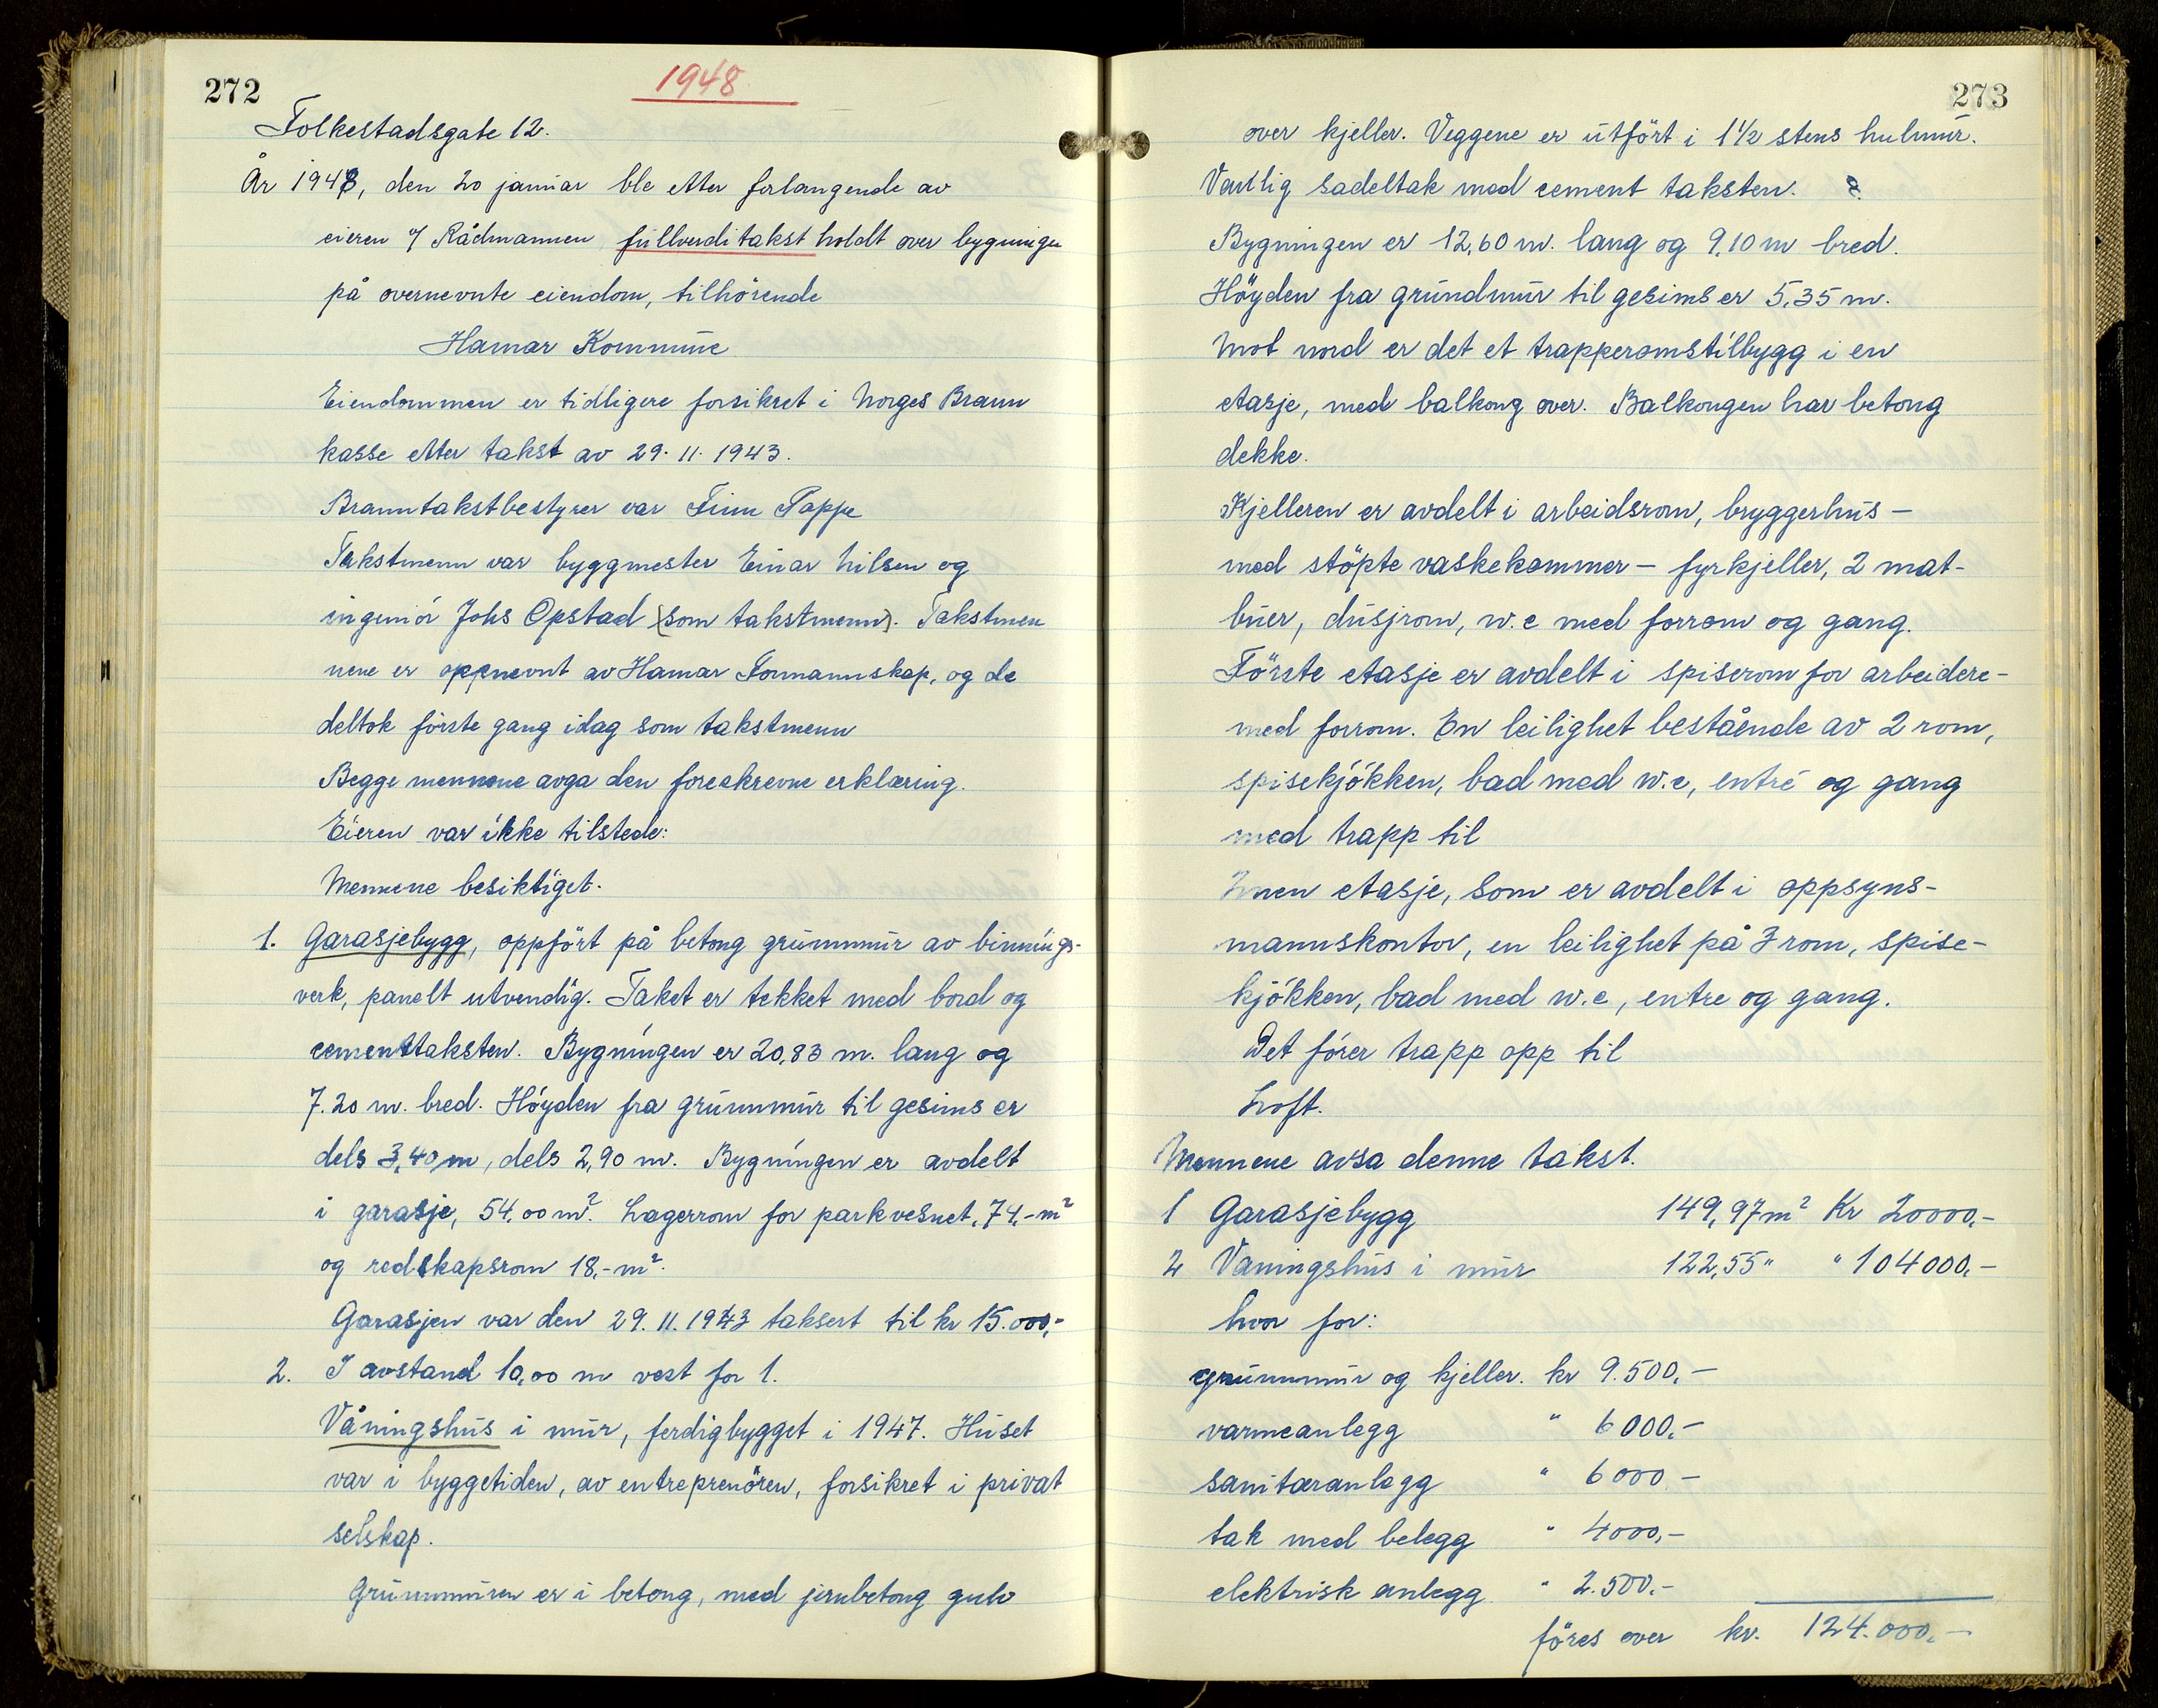 272
1948
Folkestadsgate 12.
År 1948, den 20 januar ble etter forlangende av
eieren v/ Rådmannen fullverditakst holdt over bygninger
på overnevnte eiendom, tilhörende
Hamar Kommune
Eiendommen er tidligere forsikret i Norges Brann
kasse etter takst av 29.11.1943.
Branntakstbestyrer var Finn Pappe
Takstmenn var byggmester Einar Nilsen og
ingeniör Johs Opstad (som takstmenn). Takstmen
nene er oppnevnt av Hamar Formannskap, og de
deltok förste gang idag som takstmenn
Begge mennene avga den foreskrevne erklæring.
Eieren var ikke tilstede:
Mennene besiktiget.
1. Garasjebygg, oppfört på betong grunnmur av binnings-
verk, panelt utvendig. Taket er tekket med bord og
cementtaksten. Bygningen er 20,83 m. lang og
7.20 m. bred. Höyden fra grunnmur til gesims er
dels 3,40 m, dels 2,90 m. Bygningen er avdelt
i garasje, 54,00 m². Lagerrom for parkvesnet, 74,- m²
og redskapsrom 18,- m².
Garasjen var den 29.11.1943 taksert til kr 15.000,-
2. I avstand 10,00 m vest for 1.
Våningshus i mur, ferdigbygget i 1947. Huset
var i byggetiden, av entreprenören, forsikret i privat
selskap.
Grunnmuren er i betong, med jernbetong gulv
273
over kjeller. Veggene er utfört i 1½ stens hulmur.
Vanlig sadeltak med cement taksten.
Bygningen er 12,60 m. lang og 9,10 m bred.
Höyden fra grundmur til gesims er 5,35 m.
Mot nord er det et trapperomstilbygg i en
etasje, med balkong over. Balkongen har betong
dekke.
Kjelleren er avdelt i arbeidsrom, bryggerhus -
med stöpte vaskekommer - fyrkjeller, 2 mat-
buer, dusjrom, w.c med forrom og gang.
Förste etasje er avdelt i spiserom for arbeidere -
med forrom. En leilighet bestående av 2 rom,
spisekjökken, bad med w.c, entré og gang
med trapp til
2nen etasje, som er avdelt i oppsyns-
mannskontor, en leilighet på 3 rom, spise-
kjökken, bad med w.c, entre og gang.
Det förer trapp opp til
Loft.
Mennene avsa denne takst.
1 Garasjebygg 149,97 m² Kr 20000,-
2 Våningshus i mur 122,55 " " 104000,-
hvor for:
grunnmur og kjeller. kr 9.500,-
varmeanlegg " 6000,-
sanitæranlegg " 6000,-
tak med belegg " 4000,-
elektrisk anlegg " 2.500,-
föres over kr. 124.000,-